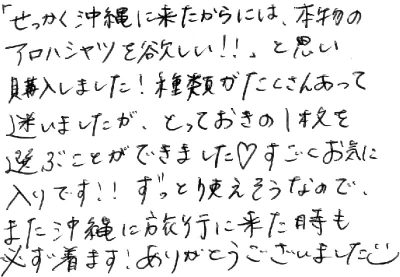 「せっかく沖縄に来たからには、本物の
アロハシャツを欲しい!!」と思い
購入しました!種類がたくさんあって
迷いましたが、とっておきの1枚を
選ぶことができました♡すごくお気に
入りです!!ずっと使えそうなので、
また沖縄に旅行に来た時も
必ず着ます!ありがとうございました☺